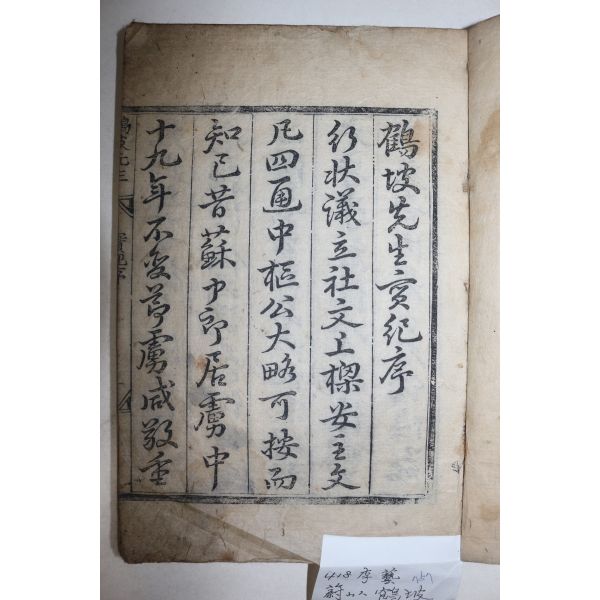 鶴坡先生實紀序
行狀議立社文上樑安主文
凡四通中樞公大略可按而
知已昔蘇中郎居虜中
十九年不変節虜咸敬重
418 李藝
蔚山人 鶴坡